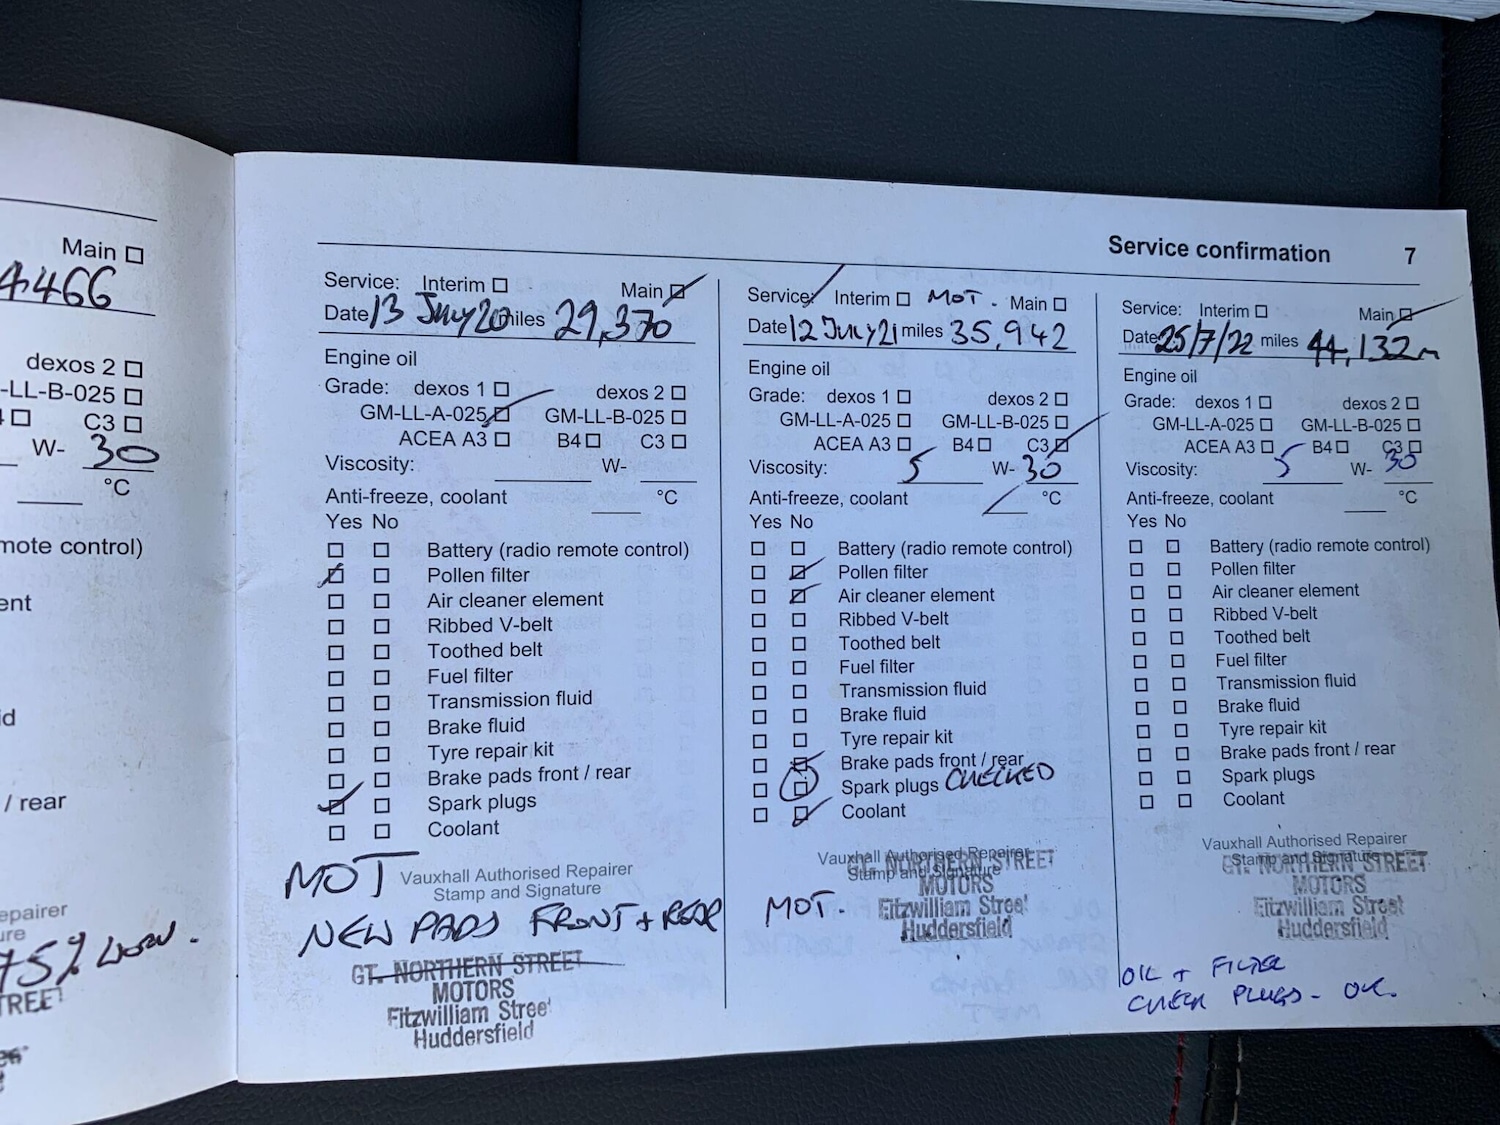 Main
4466
dexos 2
-LL-B-025
C3
W- 30
°C
mote control)
ent
id
/ rear
epairer
ure
75% worn.
TREET
Service confirmation 7
Service: Interim Main
Date 13 July 20 miles 29,370
Engine oil
Grade: dexos 1 dexos 2
GM-LL-A-025 GM-LL-B-025
ACEA A3 B4 C3
Viscosity: W-
Anti-freeze, coolant °C
Yes No
Battery (radio remote control)
Pollen filter
Air cleaner element
Ribbed V-belt
Toothed belt
Fuel filter
Transmission fluid
Brake fluid
Tyre repair kit
Brake pads front / rear
Spark plugs
Coolant
MOT
Vauxhall Authorised Repairer
Stamp and Signature
NEW PADS FRONT + REAR
GT. NORTHERN STREET
MOTORS
Fitzwilliam Street
Huddersfield
Service: Interim MOT. Main
Date 12 July 21 miles 35,942
Engine oil
Grade: dexos 1 dexos 2
GM-LL-A-025 GM-LL-B-025
ACEA A3 B4 C3
Viscosity: 5 W- 30
Anti-freeze, coolant °C
Yes No
Battery (radio remote control)
Pollen filter
Air cleaner element
Ribbed V-belt
Toothed belt
Fuel filter
Transmission fluid
Brake fluid
Tyre repair kit
Brake pads front / rear
Spark plugs CHECKED
Coolant
Vauxhall Authorised Repairer
Stamp and Signature
GT. NORTHERN STREET
MOTORS
MOT.
Fitzwilliam Street
Huddersfield
Service: Interim Main
Date 25/7/22 miles 44,132m
Engine oil
Grade: dexos 1 dexos 2
GM-LL-A-025 GM-LL-B-025
ACEA A3 B4 C3
Viscosity: 5 W- 30
Anti-freeze, coolant °C
Yes No
Battery (radio remote control)
Pollen filter
Air cleaner element
Ribbed V-belt
Toothed belt
Fuel filter
Transmission fluid
Brake fluid
Tyre repair kit
Brake pads front / rear
Spark plugs
Coolant
Vauxhall Authorised Repairer
Stamp and Signature
GT. NORTHERN STREET
MOTORS
Fitzwilliam Street
Huddersfield
OIL + FILTER
CHECK PLUGS - OK.